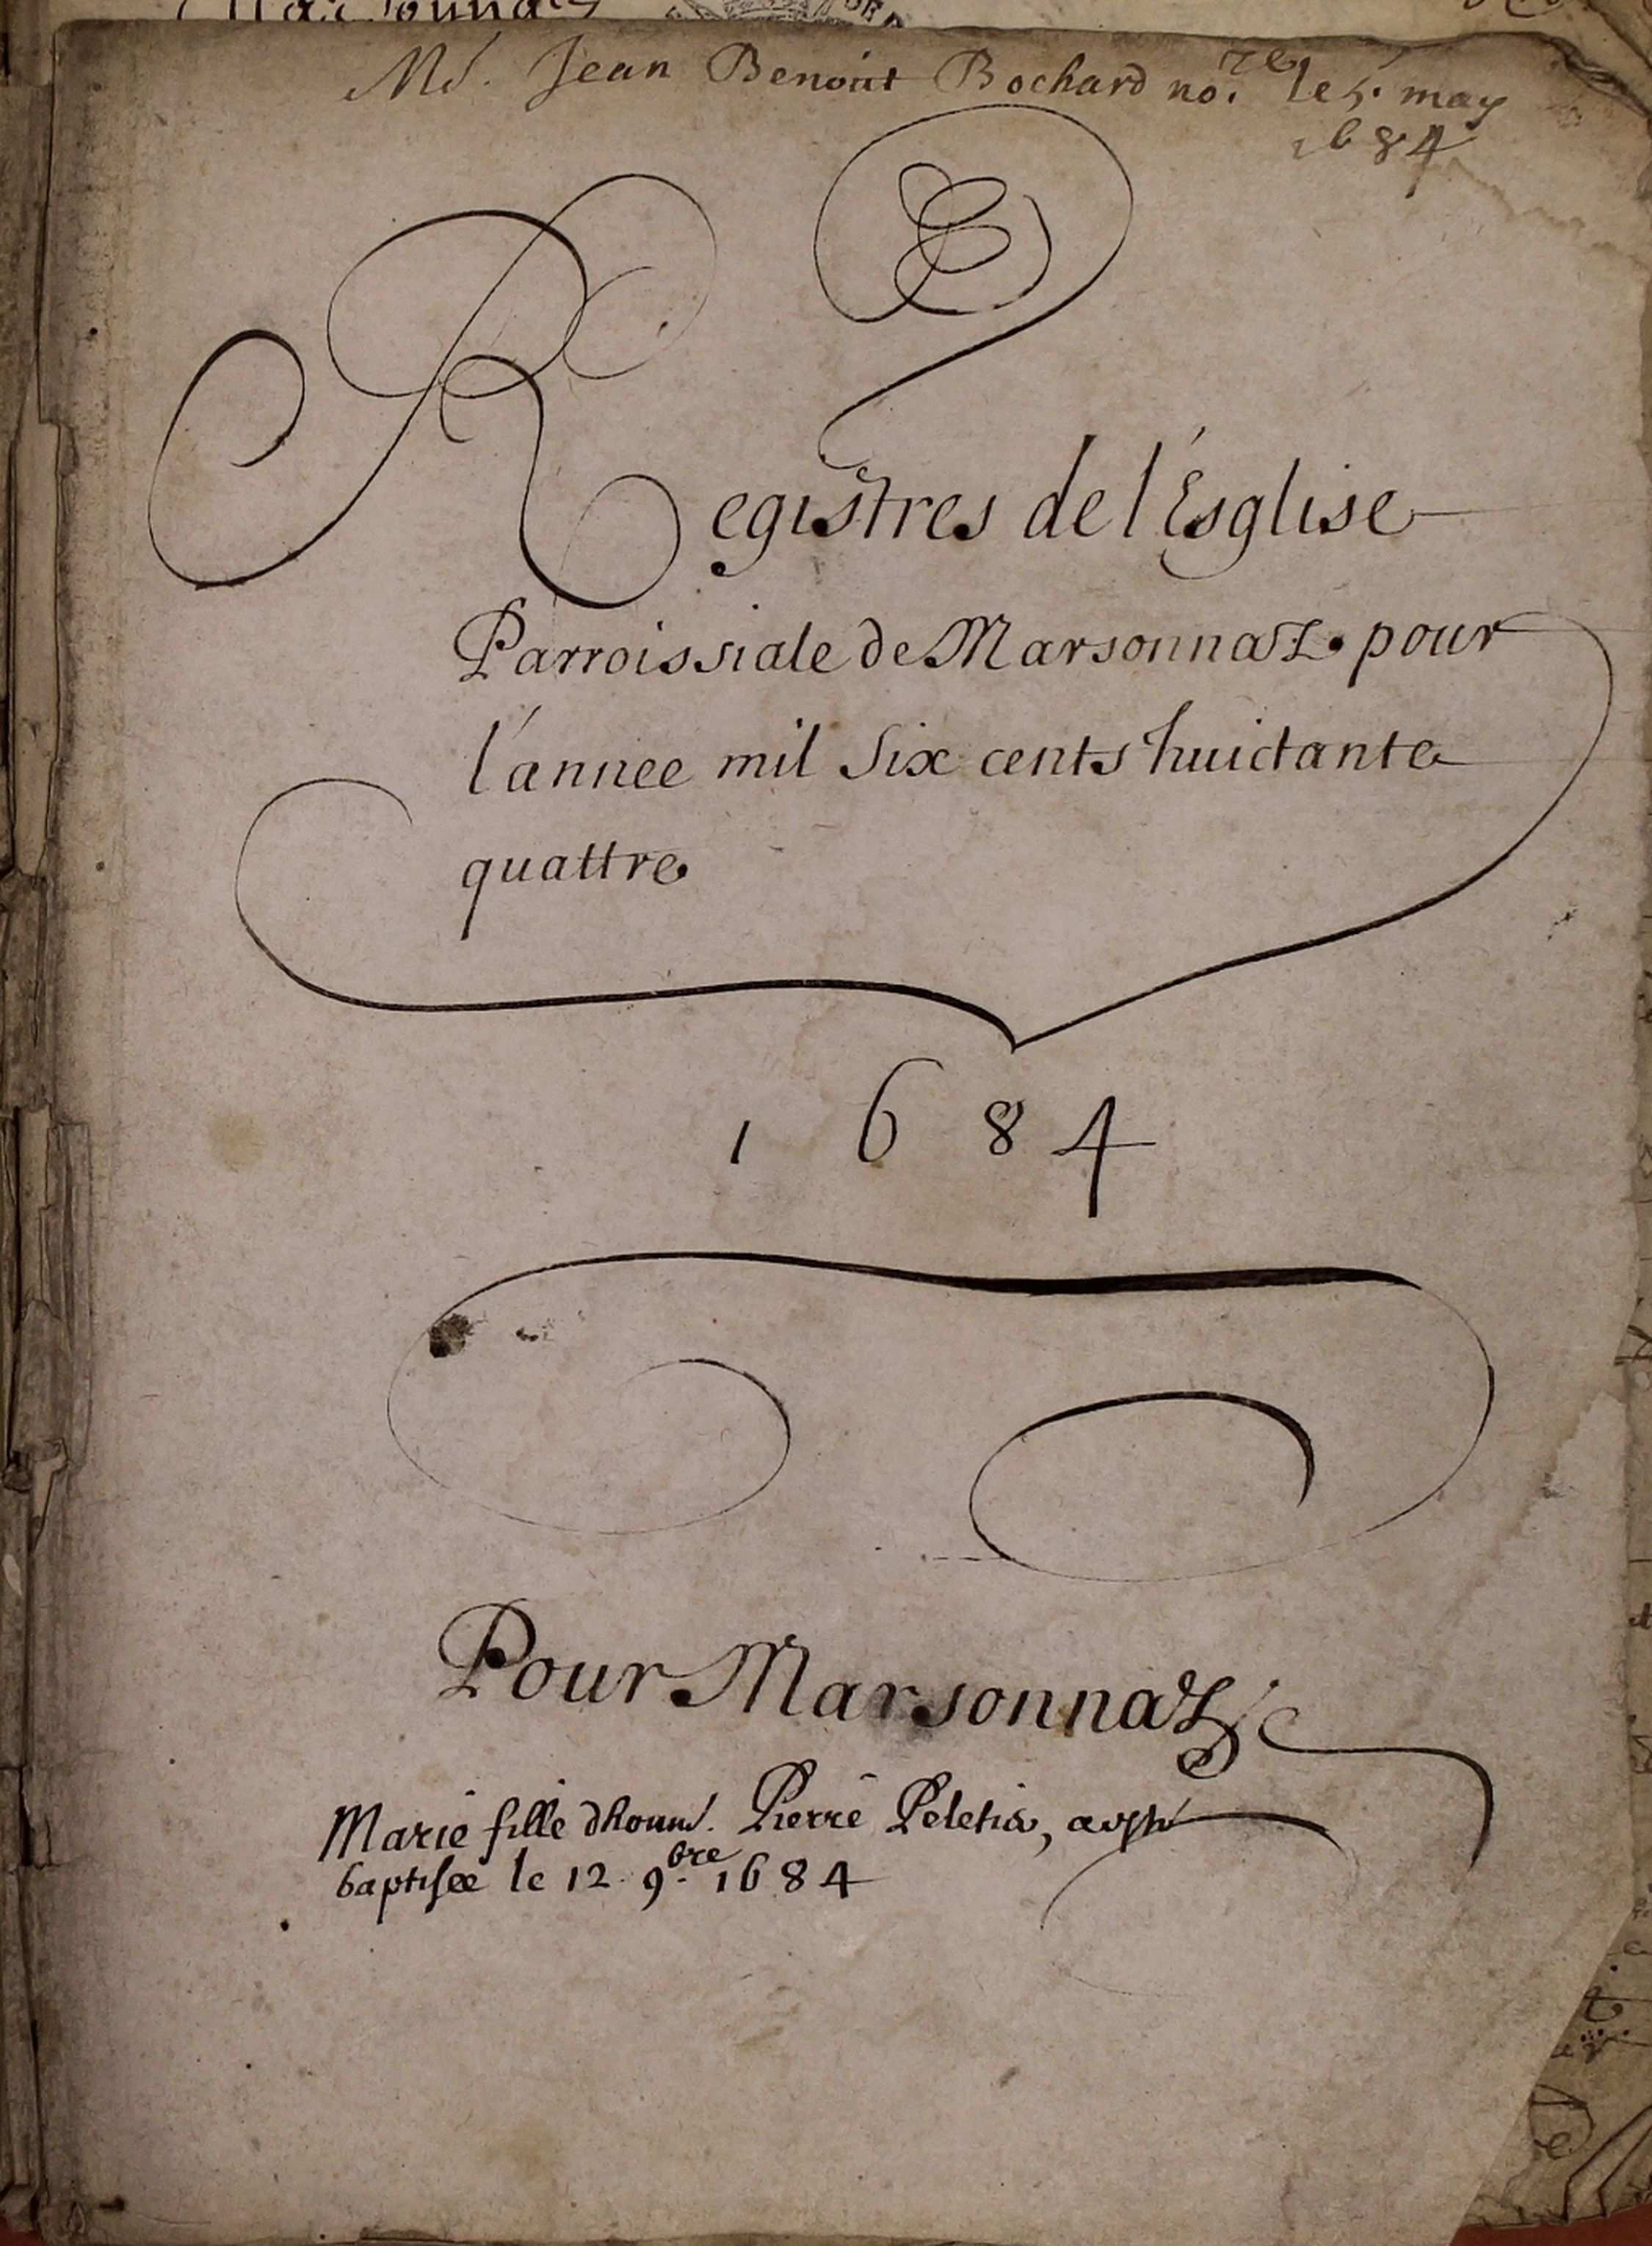 Md. Jean Benoiut Bochard no.re le 5. may
1684
Registres de l'Esglise
Parroissiale de Marsonnaz. pour
l'annee mil six cents huictante
quattre
1684
Pour Marsonnaz
Marie fille dhonn. Pierre Peletier,
baptisee le 12 9.bre 1684